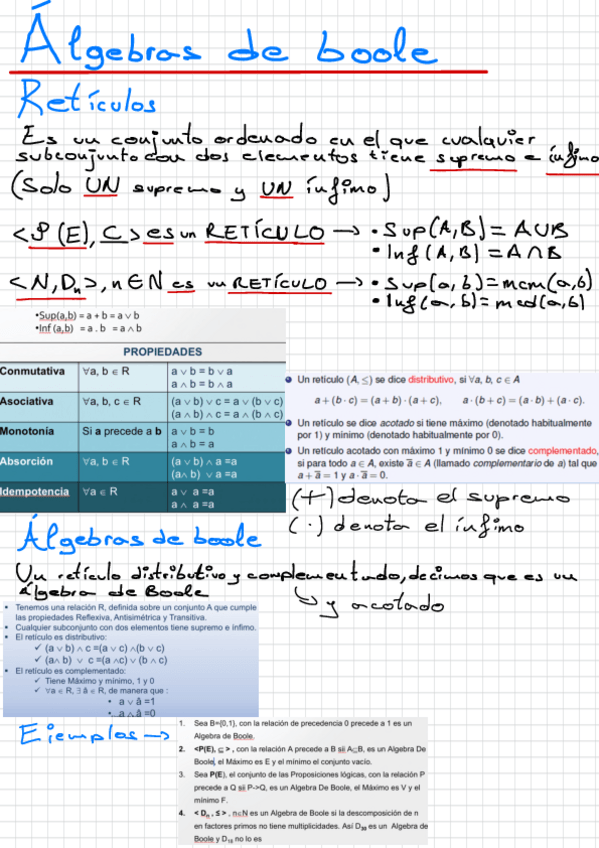 Álgebras de boole
Retículos
Es un conjunto ordenado en el que cualquier
subconjunto con dos elementos tiene supremo e ínfimo
(Solo UN supremo y UN ínfimo)
<P(E), ⊆> es un RETÍCULO → • Sup(A,B) = A∪B
• Inf(A,B) = A∩B
<N, Dn>, n∈N es un RETÍCULO → • Sup(a,b) = mcm(a,b)
• Inf(a,b) = mcd(a,b)
•Sup(a,b) = a + b = a ∨ b
•Inf (a,b) = a . b = a ∧ b
PROPIEDADES
Conmutativa ∀a, b ∈ R a ∨ b = b ∨ a
a ∧ b = b ∧ a
Asociativa ∀a, b, c ∈ R (a ∨ b) ∨ c = a ∨ (b ∨ c)
(a ∧ b) ∧ c = a ∧ (b ∧ c)
Monotonía Si a precede a b a ∨ b = b
a ∧ b = a
Absorción ∀a, b ∈ R (a ∨ b) ∧ a =a
(a∧ b) ∨ a =a
Idempotencia ∀a ∈ R a ∨ a =a
a ∧ a =a
Un retículo (A, ≤) se dice distributivo, si ∀a, b, c ∈ A
a + (b · c) = (a + b) · (a + c), a · (b + c) = (a · b) + (a · c).
Un retículo se dice acotado si tiene máximo (denotado habitualmente
por 1) y mínimo (denotado habitualmente por 0).
Un retículo acotado con máximo 1 y mínimo 0 se dice complementado,
si para todo a ∈ A, existe a̅ ∈ A (llamado complementario de a) tal que
a + a̅ = 1 y a · a̅ = 0.
(+) denota el supremo
(·) denota el ínfimo
Álgebras de boole
Un retículo distributivo y complementado, decimos que es un
álgebra de Boole
↳ y acotado
• Tenemos una relación R, definida sobre un conjunto A que cumple
las propiedades Reflexiva, Antisimétrica y Transitiva.
• Cualquier subconjunto con dos elementos tiene supremo e ínfimo.
• El retículo es distributivo:
✓ (a ∨ b) ∧ c =(a ∨ c) ∧(b ∨ c)
✓ (a∧ b) ∨ c =(a ∧c) ∨ (b ∧ c)
• El retículo es complementado:
✓ Tiene Máximo y mínimo, 1 y 0
✓ ∀a ∈ R, ∃ â ∈ R, de manera que :
• a ∨ â =1
• a ∧ â =0
Ejemplos →
1. Sea B={0,1}, con la relación de precedencia 0 precede a 1 es un
Algebra de Boole.
2. <P(E), ⊆ > , con la relación A precede a B sii A⊆B, es un Algebra De
Boole, el Máximo es E y el mínimo el conjunto vacío.
3. Sea P(E), el conjunto de las Proposiciones lógicas, con la relación P
precede a Q sii P->Q, es un Algebra De Boole, el Máximo es V y el
mínimo F.
4. < Dn , ≤ > , n∈N es un Algebra de Boole si la descomposición de n
en factores primos no tiene multiplicidades. Así D
es un Algebra de
Boole y D
no lo es